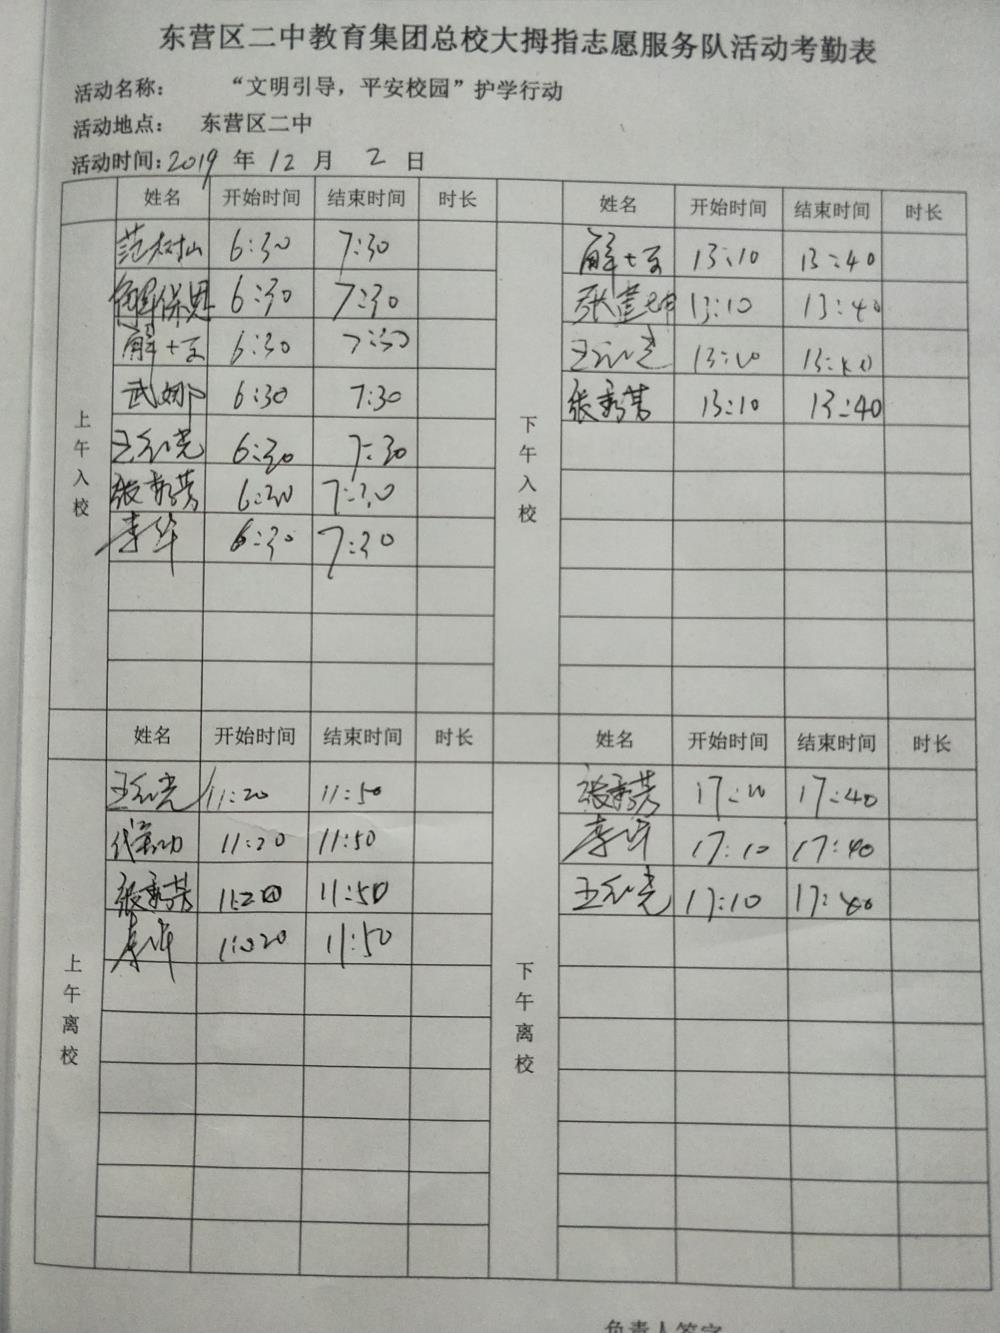 东营区二中教育集团总校大拇指志愿服务队活动考勤表
活动名称： “文明引导，平安校园”护学行动
活动地点： 东营区二中
活动时间：2019 年 12 月 2 日
姓名 开始时间 结束时间 时长 姓名 开始时间 结束时间 时长
上午入校
范树山 6:30 7:30
解保恩 6:30 7:30
解士玉 6:30 7:30
武娜 6:30 7:30
6:30 7:30
张秀芳 6:30 7:30
李华 6:30 7:30
下午入校
解士玉 13:10 13:40
张建坤 13:10 13:40
13:10 13:40
张秀芳 13:10 13:40
姓名 开始时间 结束时间 时长 姓名 开始时间 结束时间 时长
上午离校
11:20 11:50
11:20 11:50
张秀芳 11:20 11:50
李华 11:20 11:50
下午离校
张秀芳 17:10 17:40
李华 17:10 17:40
17:10 17:40
负责人签字